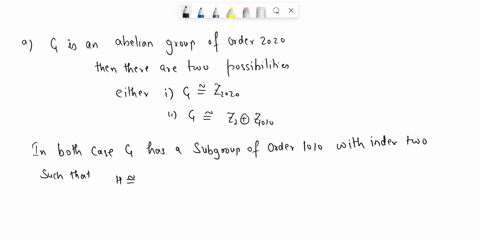 a) G is an abelian group of order 2020
then there are two possibilities
either i) G ≅ Z₂₀₂₀
ii) G ≅ Z₂ ⊕ Z₁₀₁₀
In both case G has a Subgroup of Order 1010 with index two
Such that H ≅